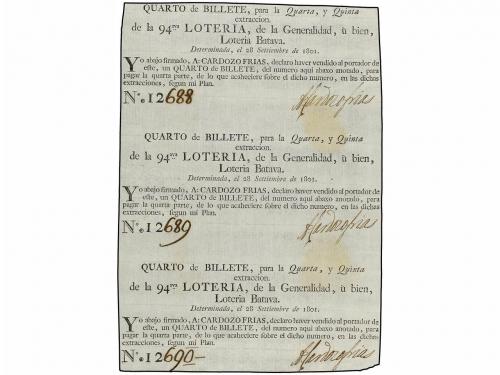 QUARTO de BILLETE, para la Quarta, y Quinta
extraccion.
de la 94ma LOTERIA, de la Generalidad, ù bien,
Loteria Batava.
Determinada, el 28 Settiembre de 1801.
Yo abajo firmado, A: CARDOZO FRIAS, declaro haver vendido al portador de
este, un QUARTO de BILLETE, del numero aqui abaxo anotado, para
pagar la quarta parte, de lo que acaheciere sobre el dicho numero, en las dichas
extracciones, segun mi Plan.
No. 12688
ACardozofrias
QUARTO de BILLETE, para la Quarta, y Quinta
extraccion.
de la 94ma LOTERIA, de la Generalidad, ù bien,
Loteria Batava.
Determinada, el 28 Settiembre de 1801.
Yo abajo firmado, A: CARDOZO FRIAS, declaro haver vendido al portador de
este, un QUARTO de BILLETE, del numero aqui abaxo anotado, para
pagar la quarta parte, de lo que acaheciere sobre el dicho numero, en las dichas
extracciones, segun mi Plan.
No. 12689
ACardozofrias
QUARTO de BILLETE, para la Quarta, y Quinta
extraccion.
de la 94ma LOTERIA, de la Generalidad, ù bien,
Loteria Batava.
Determinada, el 28 Settiembre de 1801.
Yo abajo firmado, A: CARDOZO FRIAS, declaro haver vendido al portador de
este, un QUARTO de BILLETE, del numero aqui abaxo anotado, para
pagar la quarta parte, de lo que acaheciere sobre el dicho numero, en las dichas
extracciones, segun mi Plan.
No. 12690
ACardozofrias